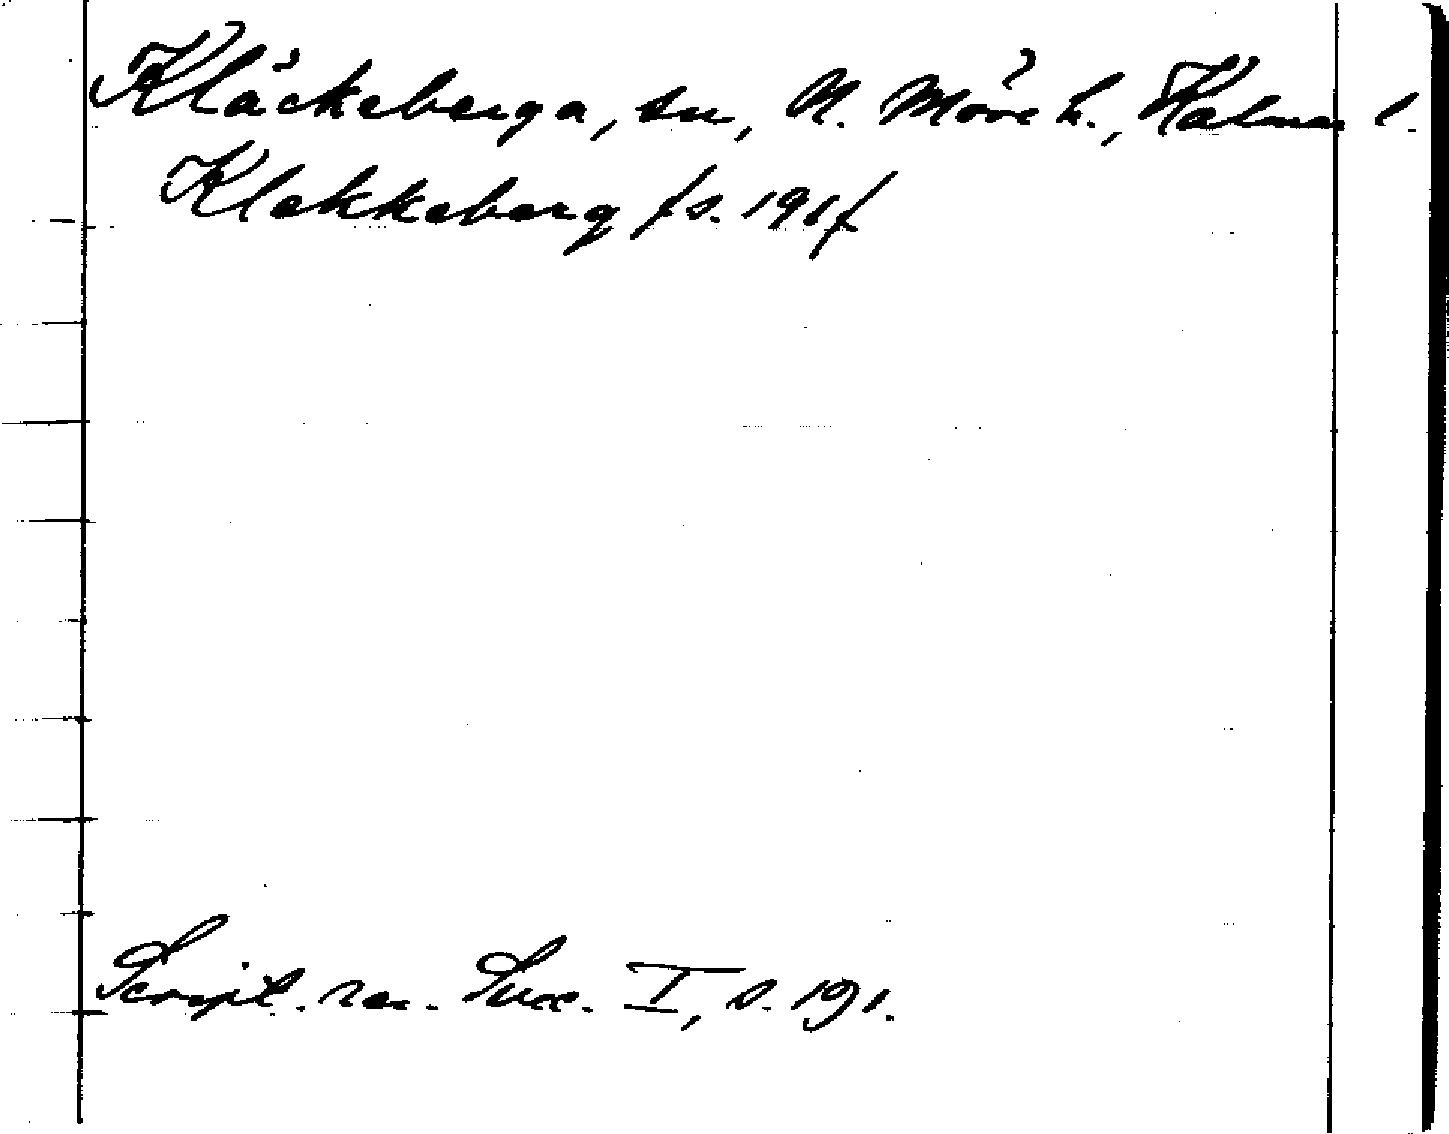 Kläckeberga, sn, N. Möre h., Kalmar l.
Klekkeberg /s. 191/
Script. rer. Suec. I, s. 191.